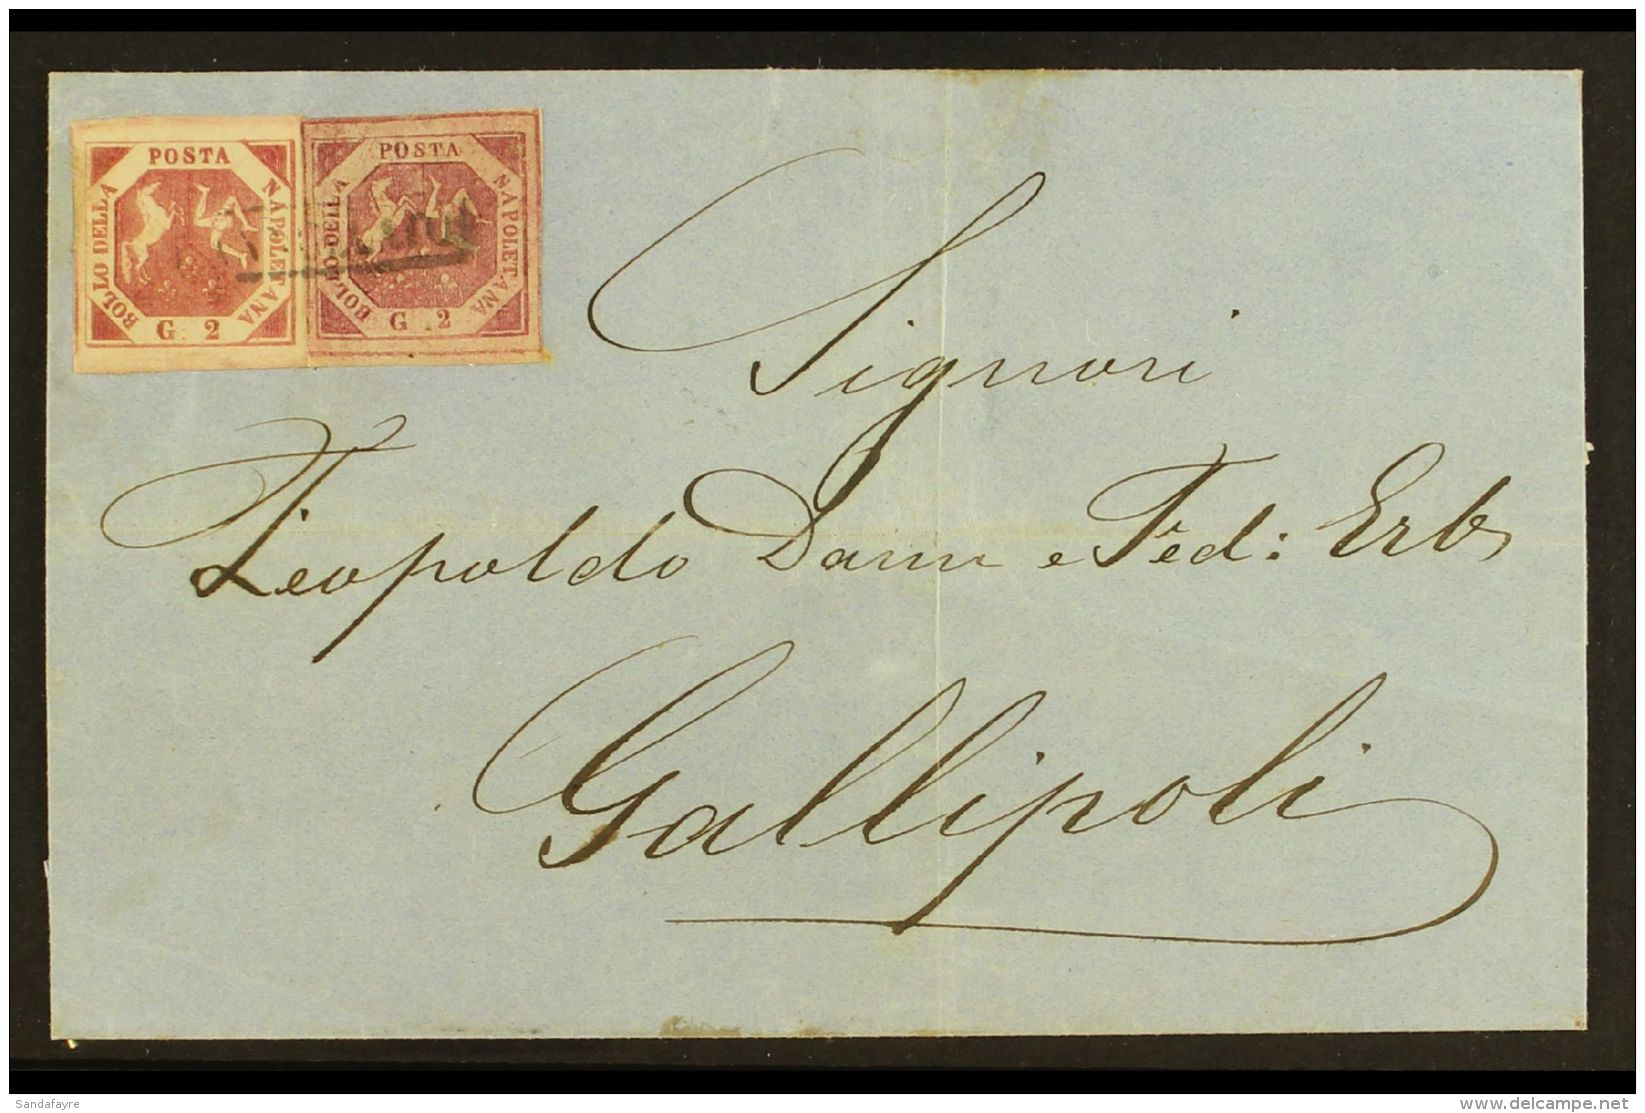 POSTA
BOLLO DELLA
NAPOLETANA
G. 2
POSTA
BOLLO DELLA
NAPOLETANA
G. 2
Signori
Leopoldo Dann e Fed: Erb
Gallipoli
Sandafayre
delcampe.net